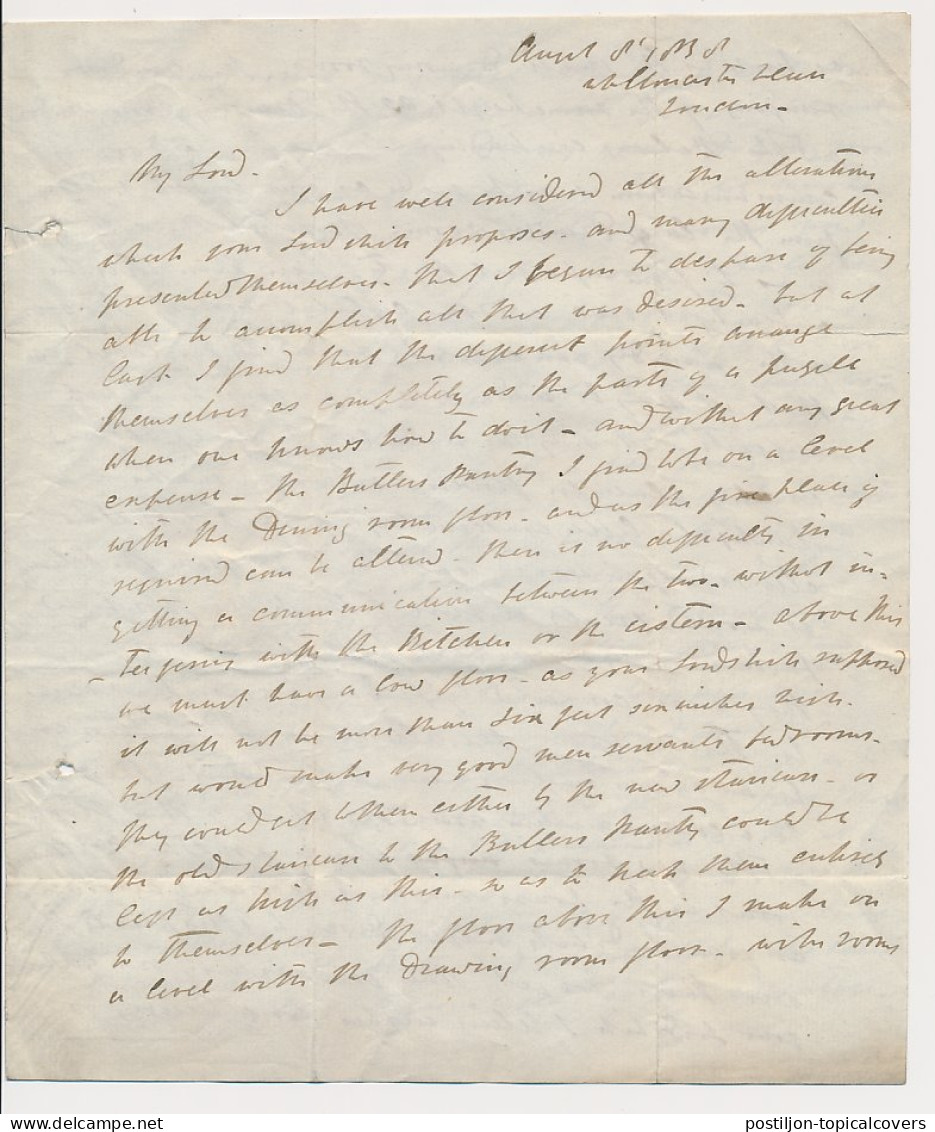 Augst 8t 1838
Gloucester
London -
My Lord.
I have well considered all the alterations
which your Lordship proposes - and many difficulties
presented themselves - that I began to despair of being
able to accomplish all that was desired - but at
last I find that the different points arrange
themselves as completely as the parts of a puzzle
when one knows how to do it - and without any great
expense - the Butlers Pantry I find to be on a level
with the Dining room floor - and as the fire place if
required can be altered - there is no difficulty in
getting a communication between the two - without in-
- terfering with the Kitchen or the cistern - above this
we must have a low floor - as your Lordship supposed
it will not be more than six feet six inches high -
but would make very good men servants bedrooms -
they could get to them either by the new staircase - or
the old staircase to the Butlers Pantry could be
kept as high as this - so as to keep them entirely
to themselves - the floor above this I make on
a level with the Drawing room floor - with rooms
postiljon-topicalcovers